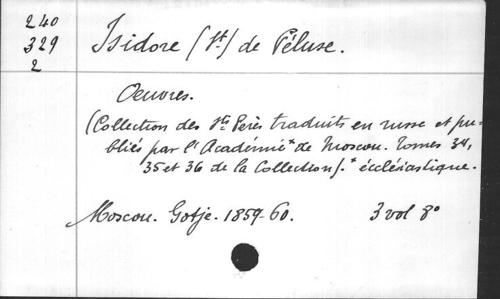 240
329
2
Isidore (St.) de Péluse.
Oeuvres.
(Collection des Sts Pères traduits en russe et pu-
bliés par l'Académie* de Moscou. Tomes 34,
35 et 36 de la Collection). * écclésiastique.
Moscou. Gotje. 1859-60. 3 vol 8°